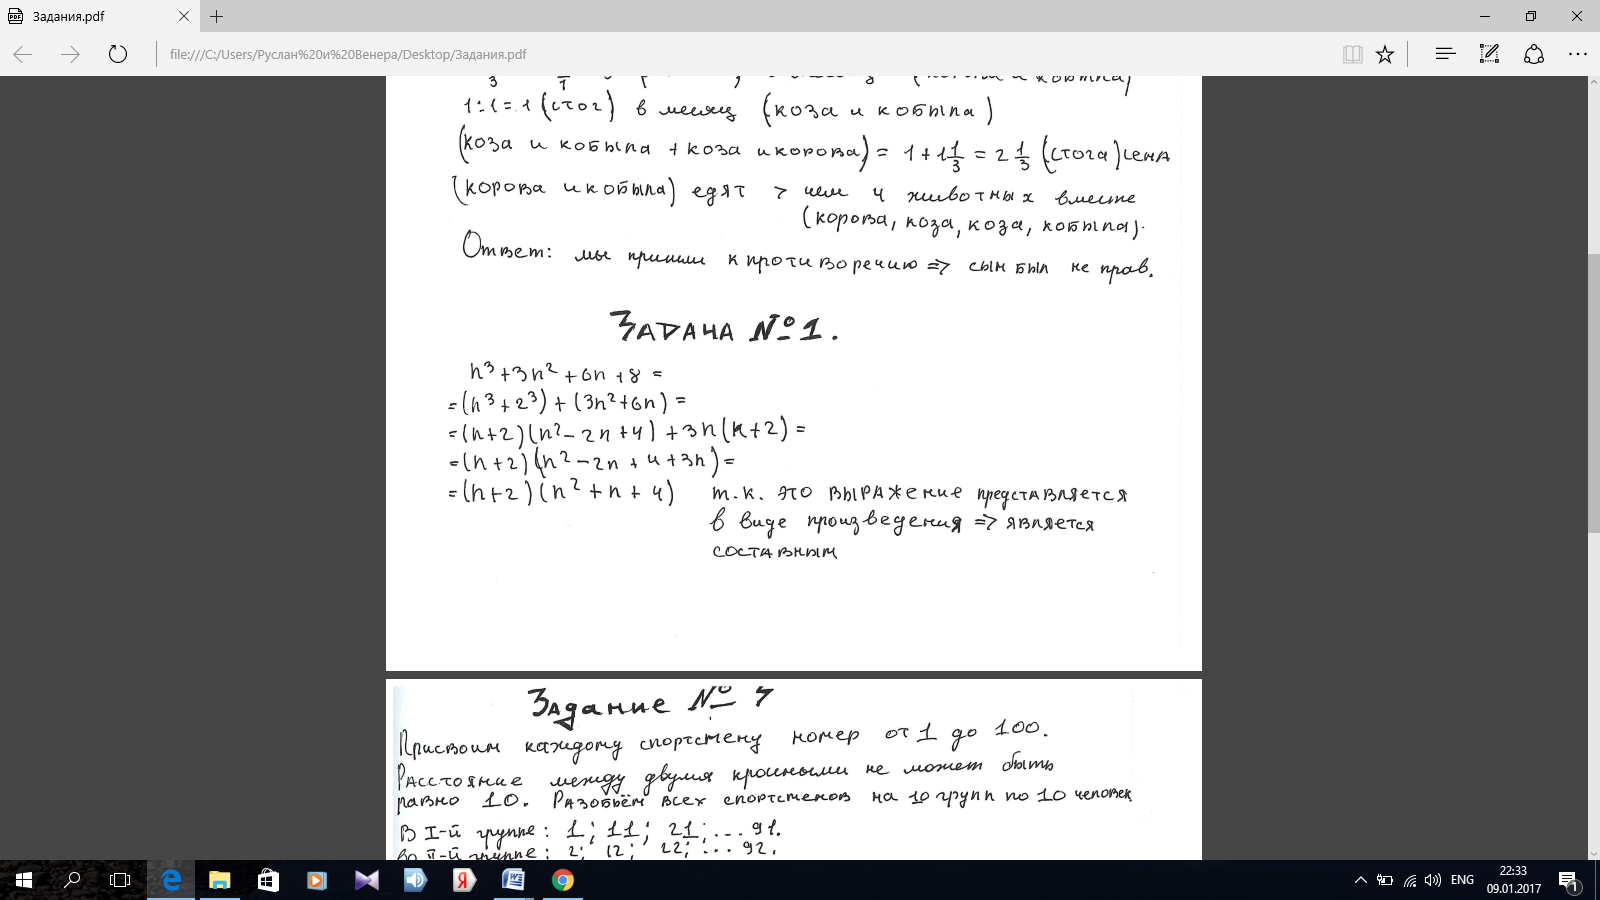 Задания.pdf
file:///C:/Users/Руслан%20и%20Венера/Desktop/Задания.pdf
1:1=1 (стог) в месяц (коза и кобыла)
(коза и кобыла + коза и корова) = 1 + 1 1/3 = 2 1/3 (стога) сена
(корова и кобыла) едят > чем 4 животных вместе
(корова, коза, коза, кобыла).
Ответ: мы пришли к противоречию => сын был не прав.
Задача №1.
n³+3n²+6n+8=
=(n³+2³)+(3n²+6n)=
=(n+2)(n²-2n+4)+3n(n+2)=
=(n+2)(n²-2n+4+3n)=
=(n+2)(n²+n+4) т.к. это выражение представляется
в виде произведения => является
составным
Задание №
Присвоим каждому спортсмену номер от 1 до 100.
Расстояние между двумя крайними не может быть
равно 10. Разобьём всех спортсменов на 10 групп по 10 человек
В I-й группе: 1; 11; 21; ... 91.
Во II-й группе: 2; 12; 22; ... 92.
ENG
22:33
09.01.2017
1